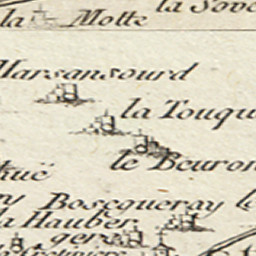 la Motte
la Sove
Marsansourd
la Touqu
le Beuron
kuë
Boscqueray
la Hauber
gerie